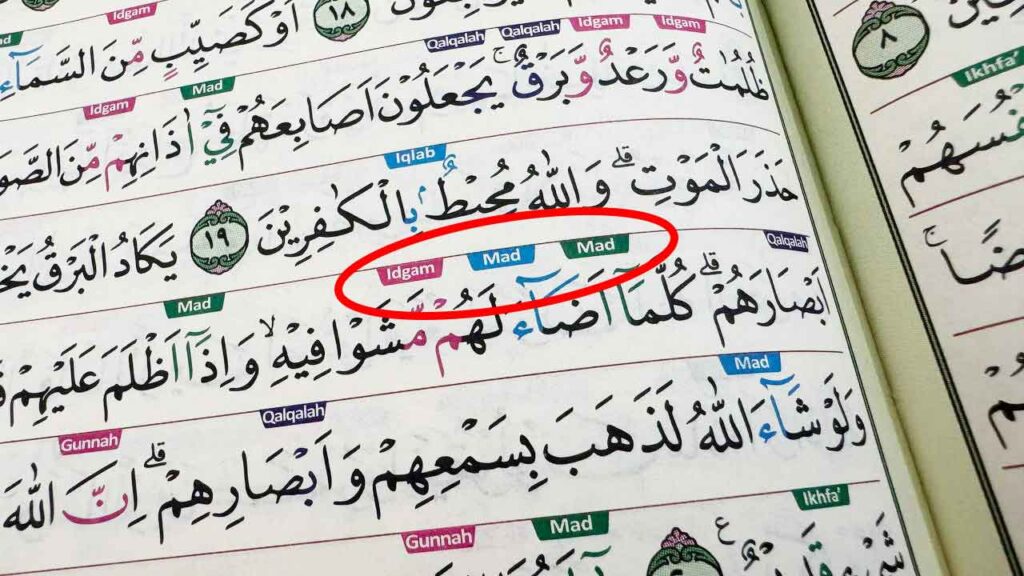 Idgam
١٨ اَوْ كَصَيِّبٍ مِّنَ السَّمَآءِ
Idgam Mad Qalqalah Qalqalah Idgam Idgam
ظُلُمٰتٌ وَّرَعْدٌ وَّبَرْقٌۚ يَجْعَلُوْنَ اَصَابِعَهُمْ فِيْٓ اٰذَانِهِمْ مِّنَ
Iqlab
حَذَرَ الْمَوْتِۗ وَاللّٰهُ مُحِيْطٌۢ بِالْكٰفِرِيْنَ ١٩ يَكَادُ الْبَرْقُ
Mad Idgam Mad Mad Qalqalah
اَبْصَارَهُمْۗ كُلَّمَآ اَضَآءَ لَهُمْ مَّشَوْا فِيْهِۙ وَاِذَآ اَظْلَمَ عَلَيْهِمْ
Gunnah Qalqalah Mad
وَلَوْ شَآءَ اللّٰهُ لَذَهَبَ بِسَمْعِهِمْ وَاَبْصَارِهِمْۗ اِنَّ اللّٰهَ
Gunnah Mad Ikhfa'
٨
Ikhfa'